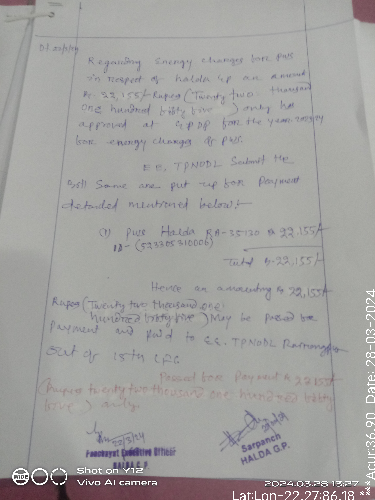 Regarding Energy charges for PWS
in respect of Halda GP an amount
Rs-22,155/- Rupees (Twenty two thousand
one hundred fifty five) only has
approved at GPDP for the year
for energy charges of PWS.
E.E, TPNODL Submit the
Bill Same are put up for Payment
detailed mentioned below:-
(1) PWS Halda RA-35120 Rs 22,155/-
ID- (523305310006)
Total Rs-22,155/-
Hence an amounting Rs 22,155/-
Rupees (Twenty two thousand one
hundred fifty five) May be passed for
Payment and paid to E.E. TPNODL
out of 15th CFC
Passed for Payment Rs 22,155/-
(Rupees twenty two thousand one hundred fifty
five) only.
Panchayat Executive Officer
HALDA G.P.
Sarpanch
HALDA G.P.
Shot on Y12
Vivo AI camera
2024.03.28 13:27
Lat:Lon-22.27:86.18
*** Acur:36.90 Date: 28-03-2024